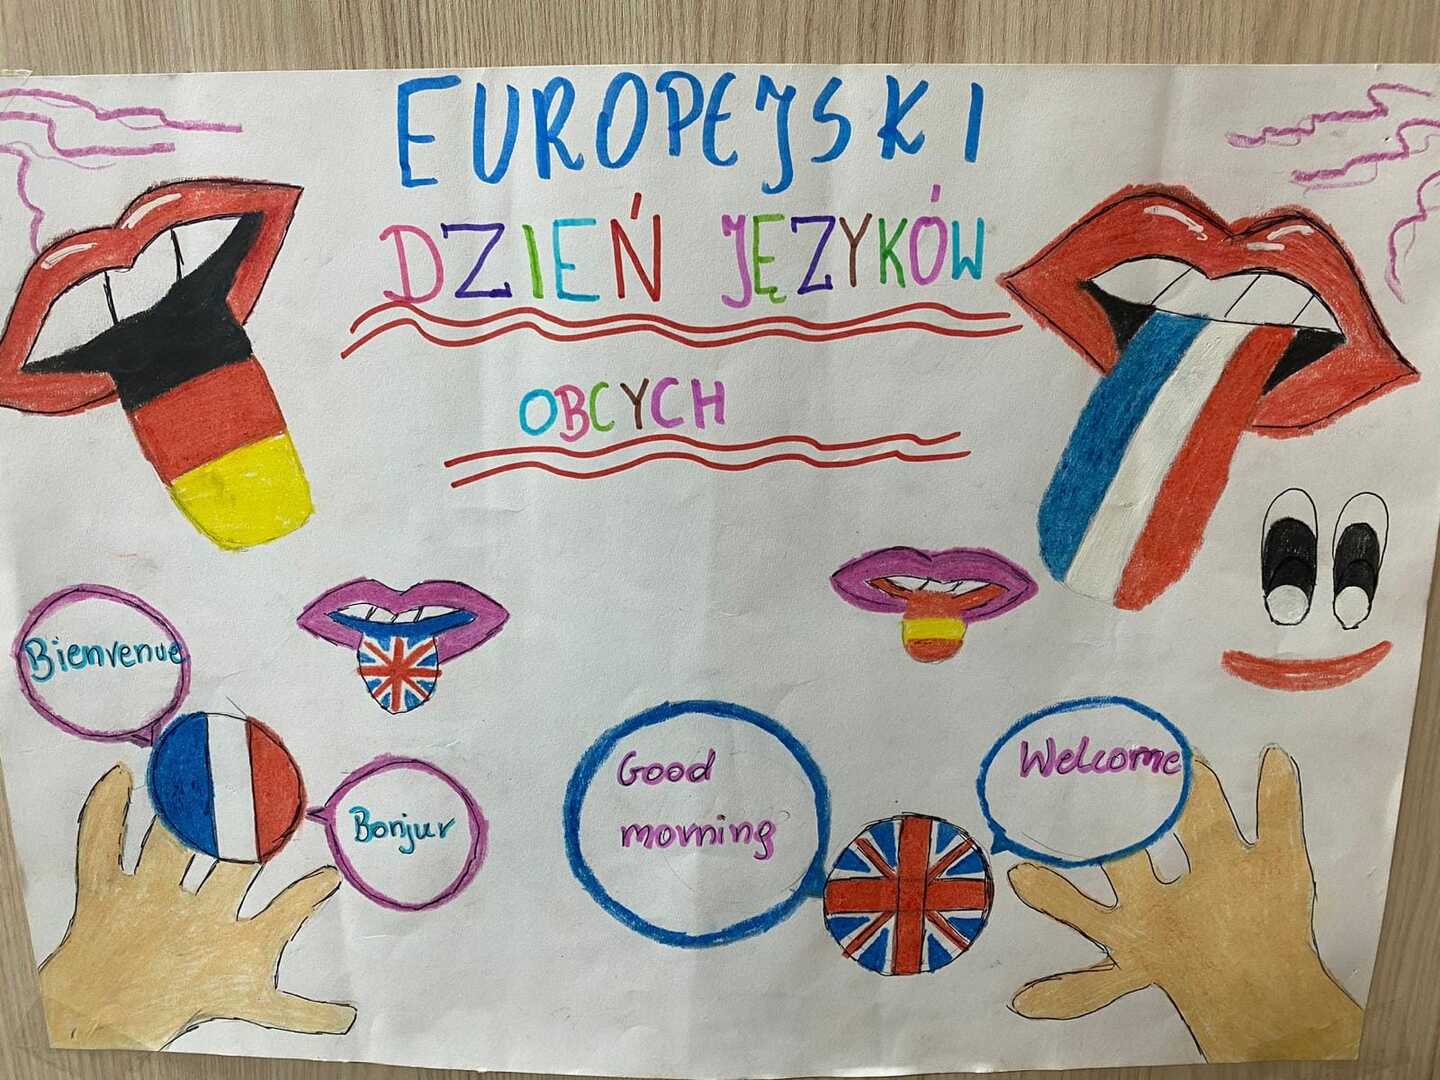 EUROPEJSKI
DZIEŃ JĘZYKÓW
OBCYCH
Bienvenue
Bonjur
Good
morning
Welcome